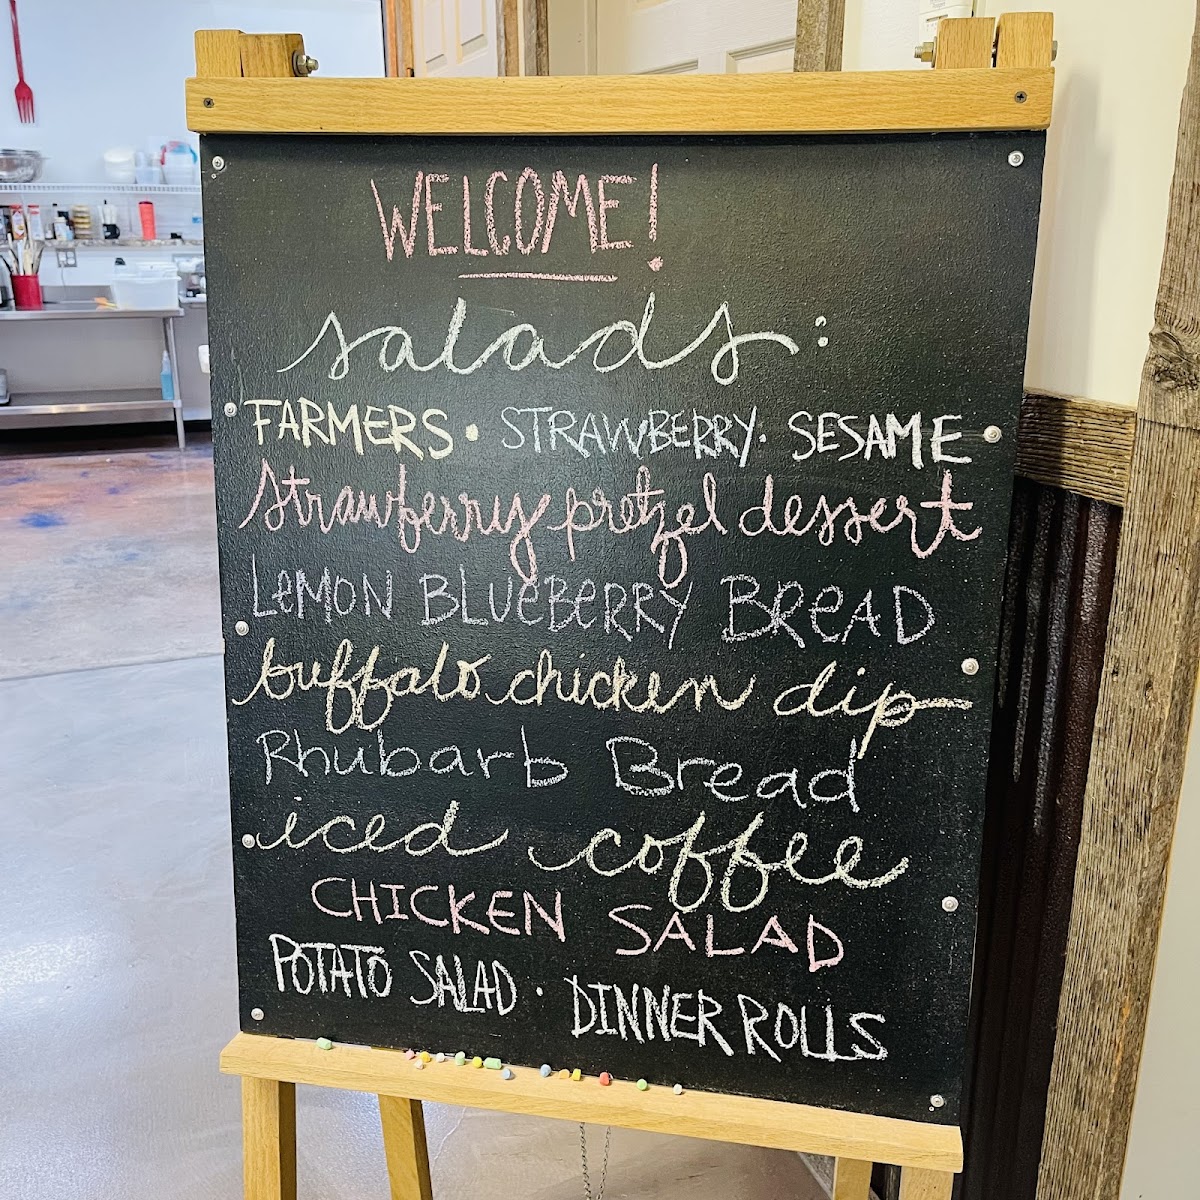 WELCOME!
salads:
FARMERS • STRAWBERRY • SESAME
strawberry pretzel dessert
LeMON BLUeBeRRY BReAD
buffalo chicken dip
Rhubarb Bread
iced coffee
CHICKEN SALAD
POTATO SALAD • DINNER ROLLS